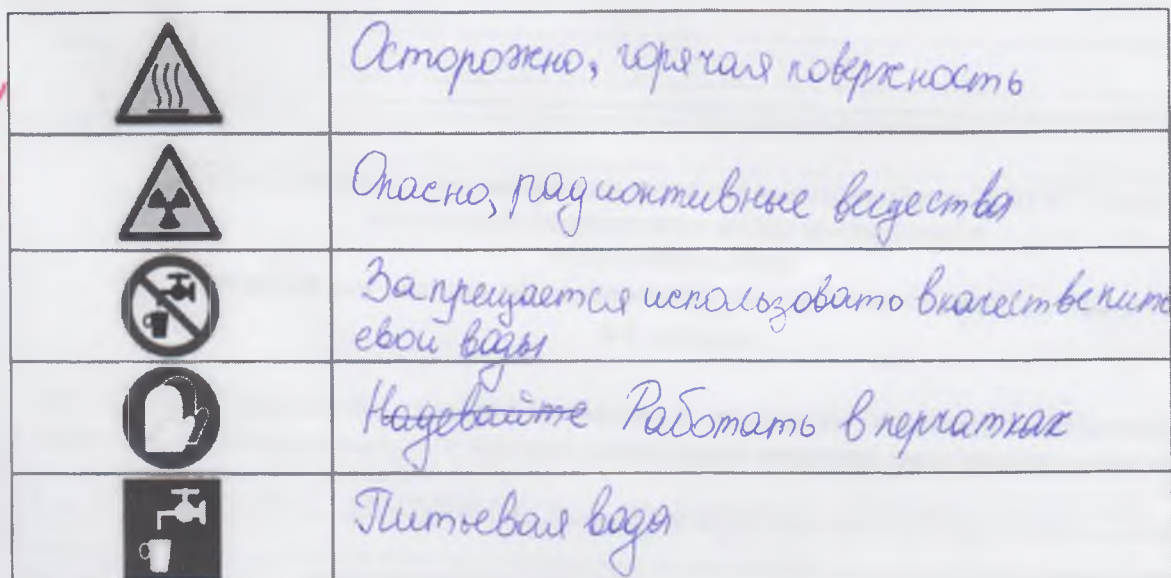 Осторожно, горячая поверхность
Опасно, радиоктивные вещества
Запрещается использовать в качестве пить
евои воды
Надевайте Работать в перчатках
Питьевая вода